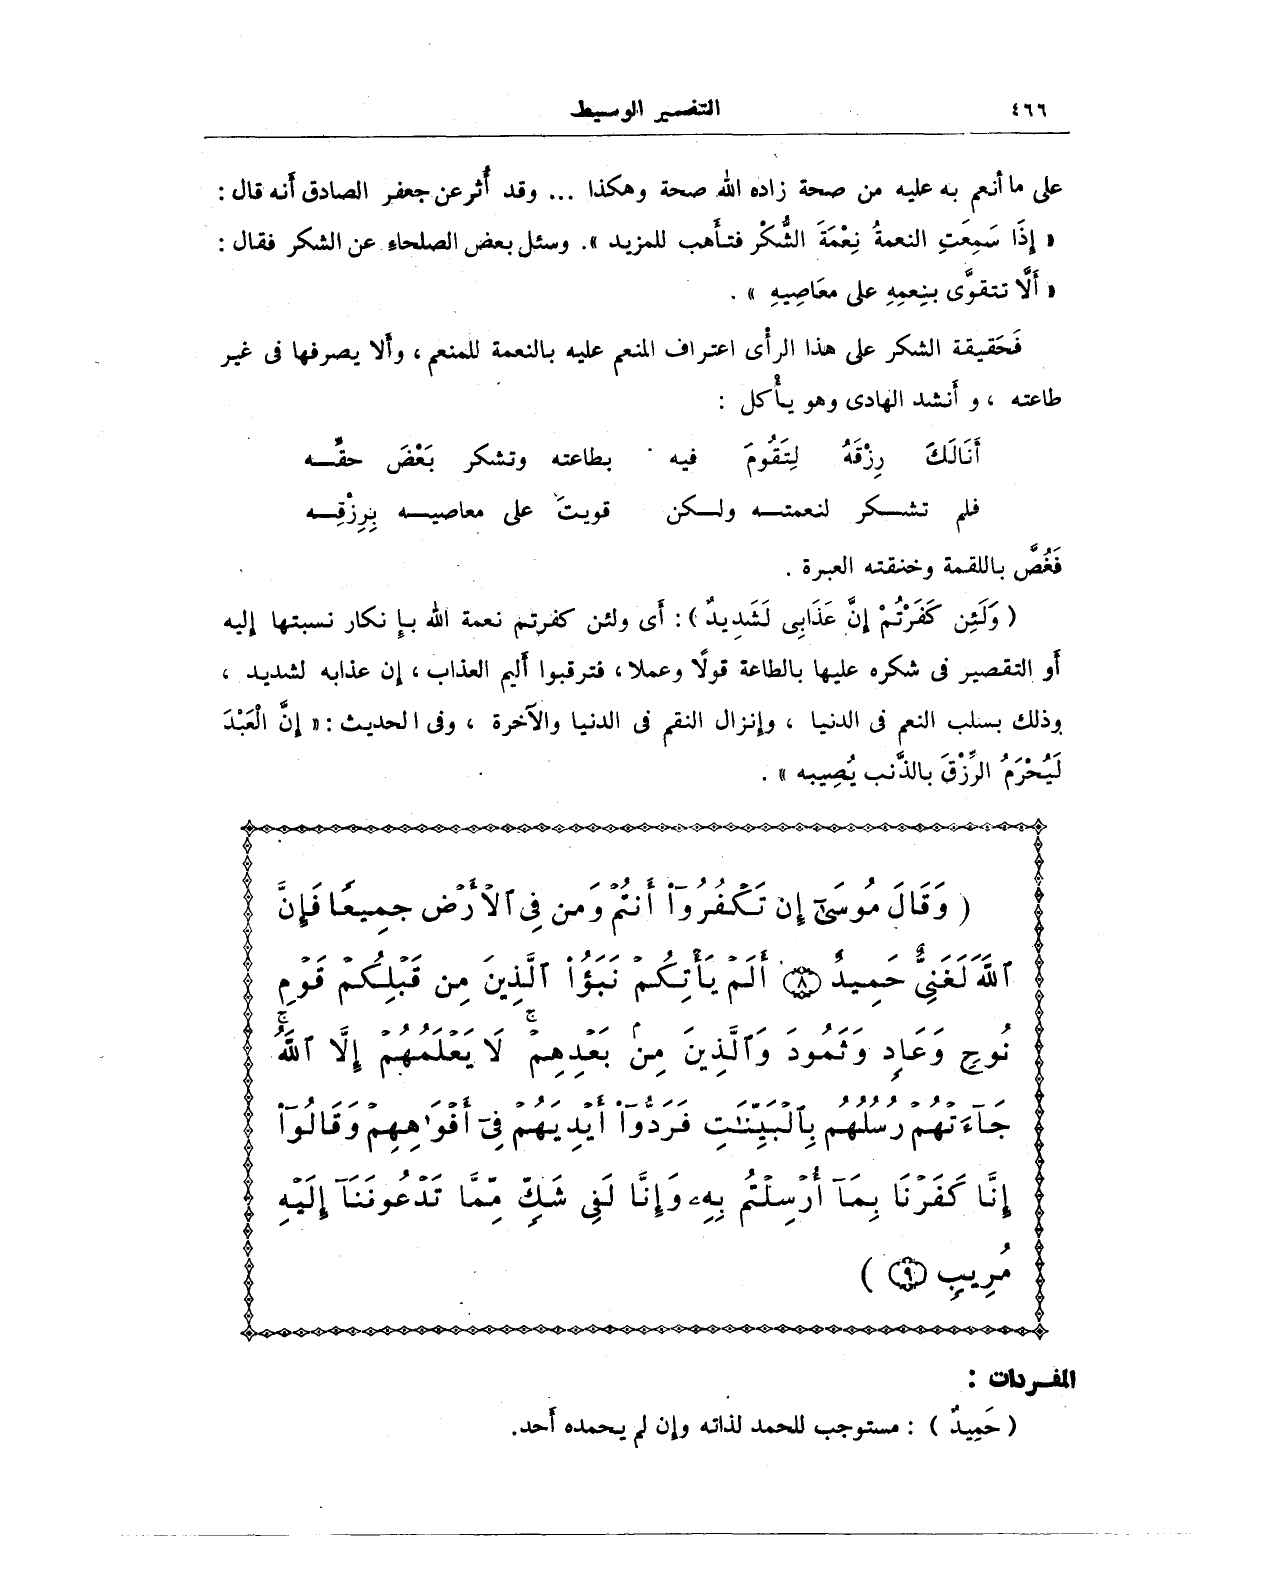 ٤٦٦ التفسير الوسيط
على ما أنعم به عليه من صحة زاده الله صحة وهكذا ... وقد أُثر عن جعفر الصادق أنه قال :
« إِذَا سَمِعَتِ النعمةُ نِعْمَةَ الشُّكْرِ فتأهب للمزيد ». وسئل بعض الصلحاء عن الشكر فقال :
« أَلَّا تتقوَّى بنِعمِهِ على معَاصِيهِ » .
فَحَقيقة الشكر على هذا الرأى اعتراف المنعم عليه بالنعمة للمنعم ، وألا يصرفها فى غير
طاعته ، و أنشد الهادى وهو يأْكل :
أَنَالَكَ رِزْقَهُ لِتَقُومَ فيه بطاعته وتشكر بَعْضَ حقِّــه
فلم تشـكر لنعمتــه ولـكن قويتَ على معاصيــه بِرِزْقِــه
فَغُصَّ باللقمة وخنقته العبرة .
( وَلَئِن كَفَرْتُمْ إِنَّ عَذَابِى لَشَدِيدٌ ) : أى ولئن كفرتم نعمة الله بإنكار نسبتها إليه
أو التقصير فى شكره عليها بالطاعة قولًا وعملا ، فترقبوا أليم العذاب ، إن عذابه لشديد ،
وذلك بسلب النعم فى الدنيا ، وإنزال النقم فى الدنيا والآخرة ، وفى الحديث : « إِنَّ الْعَبْدَ
لَيُحْرَمُ الرِّزْقَ بالذَّنب يُصِيبه » .
( وَقَالَ مُوسَىٰٓ إِن تَكْفُرُوٓا۟ أَنتُمْ وَمَن فِى ٱلْأَرْضِ جَمِيعًا فَإِنَّ
ٱللَّهَ لَغَنِىٌّ حَمِيدٌ ﴿٨﴾ أَلَمْ يَأْتِكُمْ نَبَؤُا۟ ٱلَّذِينَ مِن قَبْلِكُمْ قَوْمِ
نُوحٍ وَعَادٍ وَثَمُودَ وَٱلَّذِينَ مِنۢ بَعْدِهِمْ ۛ لَا يَعْلَمُهُمْ إِلَّا ٱللَّهُ ۚ
جَآءَتْهُمْ رُسُلُهُم بِٱلْبَيِّنَٰتِ فَرَدُّوٓا۟ أَيْدِيَهُمْ فِىٓ أَفْوَٰهِهِمْ وَقَالُوٓا۟
إِنَّا كَفَرْنَا بِمَآ أُرْسِلْتُم بِهِۦ وَإِنَّا لَفِى شَكٍّ مِّمَّا تَدْعُونَنَآ إِلَيْهِ
مُرِيبٍ ﴿٩﴾ )
المفـردات :
( حَمِيدٌ ) : مستوجب للحمد لذاته وإن لم يحمده أحد.